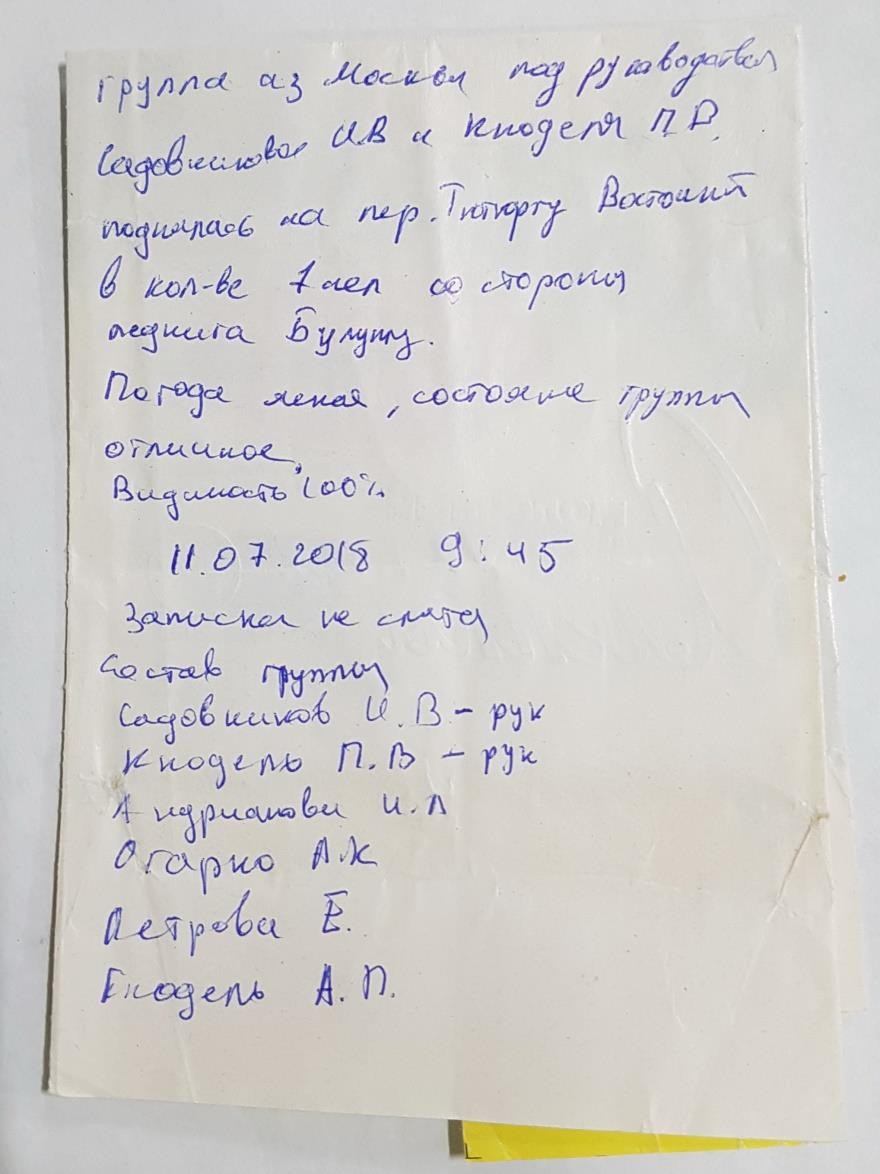 группа из Москвы под руководством
Садовникова И.В и Кноделя П.В.
поднялась на пер. Тютюргу Восточный
в кол-ве 7 чел со стороны
ледника Булунгу.
Погода ясная, состояние группы
отличное.
Видимость 100%.
11.07.2018 9:45
Записка не снята
Состав группы
Садовников И.В - рук
Кнодель П.В - рук
Андрианова И.
Огарко А.К
Петрова Е.
Кнодель А.П.